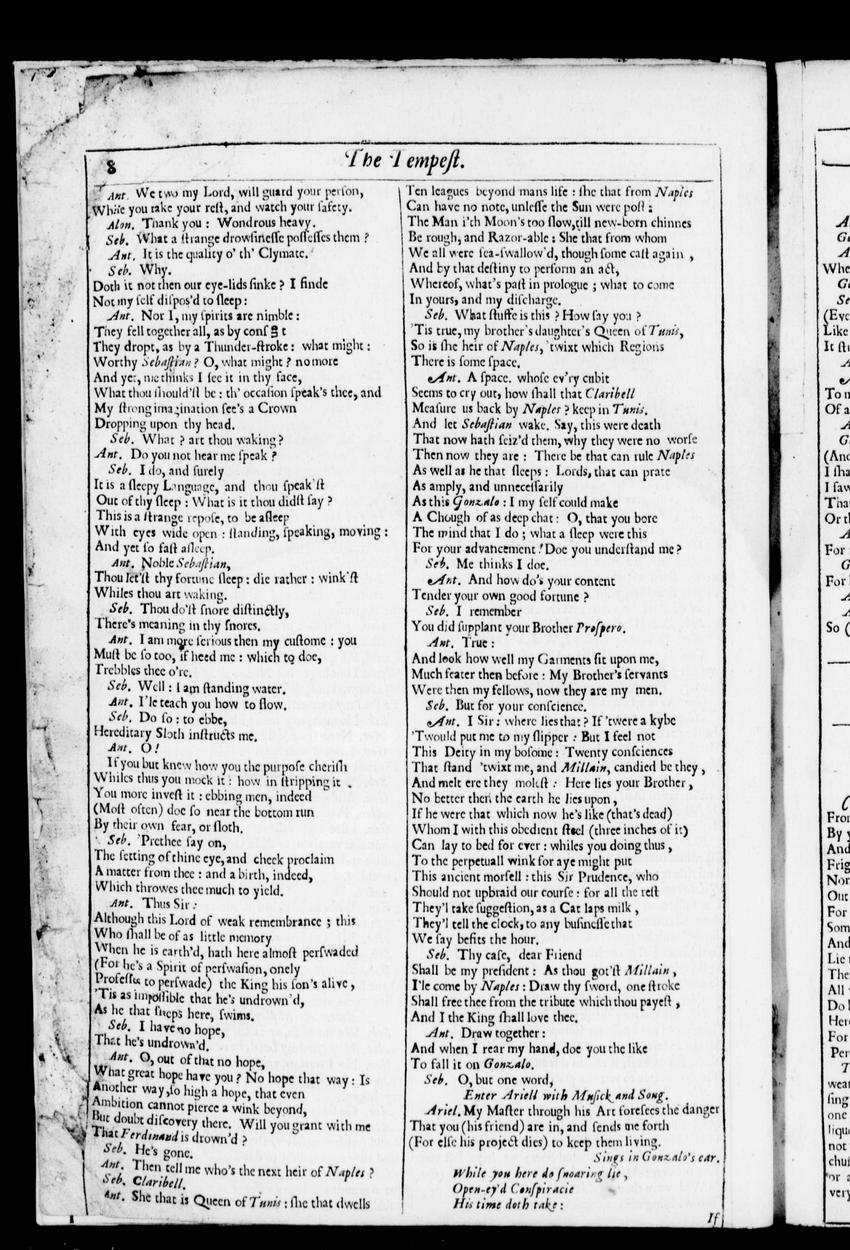 8
The Tempeſt.
Ant. We two my Lord, will guard your perſon,
While you take your reſt, and watch your ſafety.
Alon. Thank you : Wondrous heavy.
Seb. What a ſtrange drowſineſſe poſſeſſes them ?
Ant. It is the quality o' th' Clymate.
Seb. Why.
Doth it not then our eye-lids ſinke ? I finde
Not my ſelf diſpos'd to ſleep :
Ant. Nor I, my ſpirits are nimble :
They fell together all, as by conſ t
They dropt, as by a Thunder-ſtroke : what might :
Worthy Sebaſtian ? O, what might ? no more
And yet, me thinks I ſee it in thy face,
What thou ſhould'ſt be : th' occaſion ſpeak's thee, and
My ſtrong imagination ſee's a Crown
Dropping upon thy head.
Seb. What ? art thou waking ?
Ant. Do you not hear me ſpeak ?
Seb. I do, and ſurely
It is a ſleepy Language, and thou ſpeak'ſt
Out of thy ſleep : What is it thou didſt ſay ?
This is a ſtrange repoſe, to be aſleep
With eyes wide open : ſtanding, ſpeaking, moving :
And yet ſo faſt aſleep.
Ant. Noble Sebaſtian,
Thou let'ſt thy fortune ſleep : die rather : wink'ſt
Whiles thou art waking.
Seb. Thou do'ſt ſnore diſtinctly,
There's meaning in thy ſnores.
Ant. I am more ſerious then my cuſtome : you
Muſt be ſo too, if heed me : which to doe,
Trebbles thee o're.
Seb. Well : I am ſtanding water.
Ant. I'le teach you how to flow.
Seb. Do ſo : to ebbe,
Hereditary Sloth inſtructs me.
Ant. O !
If you but knew how you the purpoſe cheriſh
Whiles thus you mock it : how in ſtripping it .
You more inveſt it : ebbing men, indeed
(Moſt often) doe ſo near the bottom run
By their own fear, or ſloth.
Seb. 'Prethee ſay on,
The ſetting of thine eye, and cheek proclaim
A matter from thee : and a birth, indeed,
Which throwes thee much to yield.
Ant. Thus Sir :
Although this Lord of weak remembrance ; this
Who ſhall be of as little memory
When he is earth'd, hath here almoſt perſwaded
(For he's a Spirit of perſwaſion, onely
Profeſſes to perſwade) the King his ſon's alive,
'Tis as impoſſible that he's undrown'd,
As he that ſleeps here, ſwims.
Seb. I have no hope,
That he's undrown'd.
Ant. O, out of that no hope,
What great hope have you ? No hope that way : Is
Another way, ſo high a hope, that even
Ambition cannot pierce a wink beyond,
But doubt diſcovery there. Will you grant with me
That Ferdinand is drown'd ?
Seb. He's gone.
Ant. Then tell me who's the next heir of Naples ?
Seb. Claribell.
Ant. She that is Queen of Tunis : ſhe that dwells
Ten leagues beyond mans life : ſhe that from Naples
Can have no note, unleſſe the Sun were poſt :
The Man i'th Moon's too ſlow, till new-born chinnes
Be rough, and Razor-able : She that from whom
We all were ſea-ſwallow'd, though ſome caſt again ,
And by that deſtiny to perform an act,
Whereof, what's paſt in prologue ; what to come
In yours, and my diſcharge.
Seb. What ſtuffe is this ? How ſay you ?
'Tis true, my brother's daughter's Queen of Tunis,
So is ſhe heir of Naples, 'twixt which Regions
There is ſome ſpace.
Ant. A ſpace. whoſe ev'ry cubit
Seems to cry out, how ſhall that Claribell
Meaſure us back by Naples ? keep in Tunis.
And let Sebaſtian wake. Say, this were death
That now hath ſeiz'd them, why they were no worſe
Then now they are : There be that can rule Naples
As well as he that ſleeps : Lords, that can prate
As amply, and unneceſſarily
As this Gonzalo : I my ſelf could make
A Chough of as deep chat : O, that you bore
The mind that I do ; what a ſleep were this
For your advancement ! Doe you underſtand me ?
Seb. Me thinks I doe.
Ant. And how do's your content
Tender your own good fortune ?
Seb. I remember
You did ſupplant your Brother Proſpero.
Ant. True :
And look how well my Garments ſit upon me,
Much feater then before : My Brother's ſervants
Were then my fellows, now they are my men.
Seb. But for your conſcience.
Ant. I Sir : where lies that ? If 'twere a kybe
'Twould put me to my ſlipper : But I feel not
This Deity in my boſome : Twenty conſciences
That ſtand 'twixt me, and Millain, candied be they ,
And melt ere they moleſt : Here lies your Brother ,
No better then the earth he lies upon ,
If he were that which now he's like (that's dead)
Whom I with this obedient ſteel (three inches of it)
Can lay to bed for ever : whiles you doing thus ,
To the perpetuall wink for aye might put
This ancient morſell : this Sir Prudence, who
Should not upbraid our courſe : for all the reſt
They'l take ſuggeſtion, as a Cat laps milk ,
They'l tell the clock, to any buſineſſe that
We ſay befits the hour.
Seb. Thy caſe, dear Friend
Shall be my preſident : As thou got'ſt Millain ,
I'le come by Naples : Draw thy ſword, one ſtroke
Shall free thee from the tribute which thou payeſt ,
And I the King ſhall love thee.
Ant. Draw together :
And when I rear my hand, doe you the like
To fall it on Gonzalo.
Seb. O, but one word,
Enter Ariell with Muſick and Song.
Ariel. My Maſter through his Art foreſees the danger
That you (his friend) are in, and ſends me forth
(For elſe his project dies) to keep them living.
Sings in Gonzalo's ear.
While you here do ſnoaring lie ,
Open-ey'd Conſpiracie
His time doth take :
If